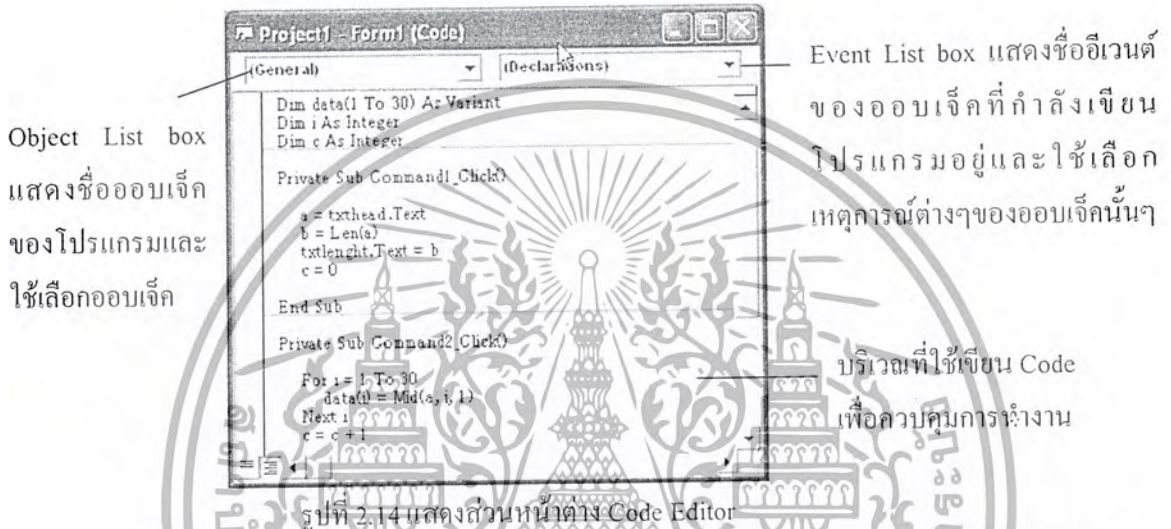 Project1 - Form1 (Code)
(General)
(Declarations)
Dim data(1 To 30) As Variant
Dim i As Integer
Dim c As Integer
Private Sub Command1_Click()
a = txthead.Text
b = Len(a)
txtlenght.Text = b
c = 0
End Sub
Private Sub Command2_Click()
For i = 1 To 30
data(i) = Mid(a, i, 1)
Next i
c = c + 1
Object List box
แสดงชื่อออบเจ็ค
ของโปรแกรมและ
ใช้เลือกออบเจ็ค
Event List box แสดงชื่ออีเวนต์
ของออบเจ็คที่กำลังเขียน
โปรแกรมอยู่และใช้เลือก
เหตุการณ์ต่างๆของออบเจ็คนั้นๆ
บริเวณที่ใช้เขียน Code
เพื่อควบคุมการทำงาน
รูปที่ 2.14 แสดงส่วนหน้าต่าง Code Editor